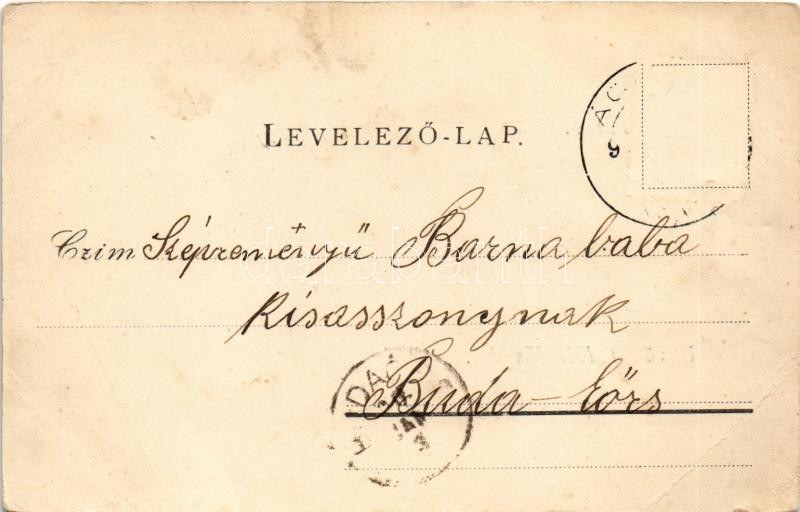 LEVELEZŐ-LAP.
Czim Szépreményű Barna baba
kisasszonynak
Buda-Eörs
darabanth